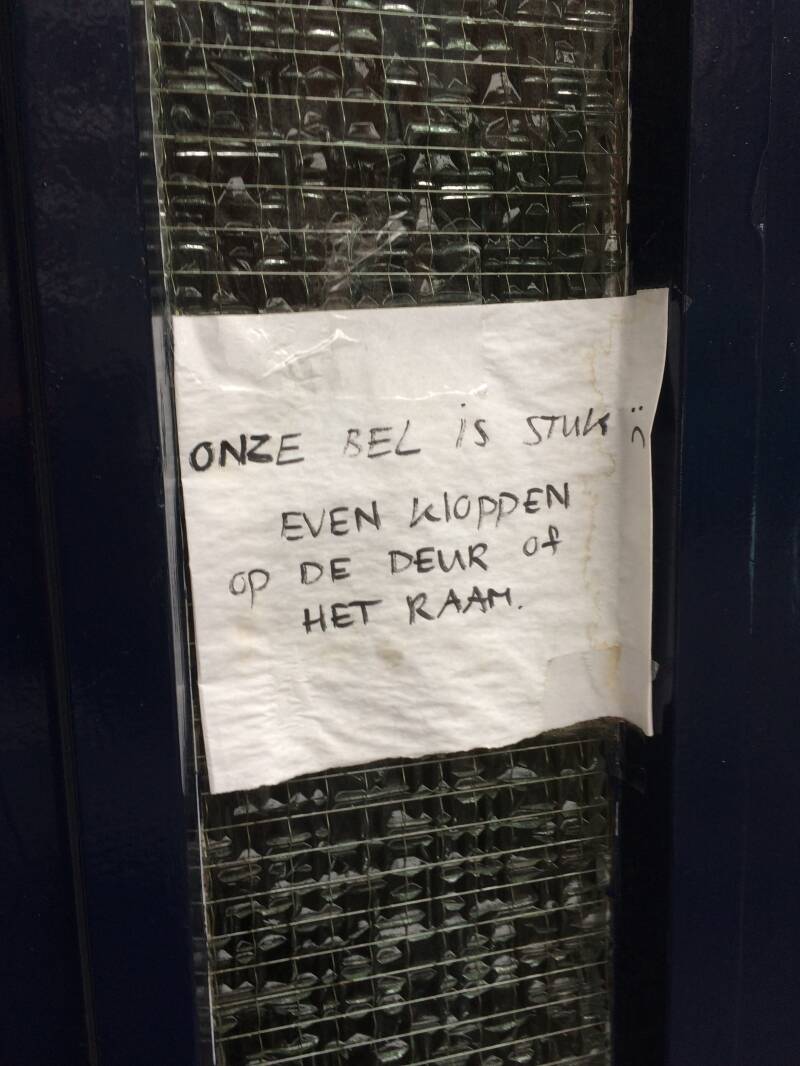 ONZE BEL iS STUK :(
EVEN KlOPPEN
op DE DEUR of
HET RAAM.